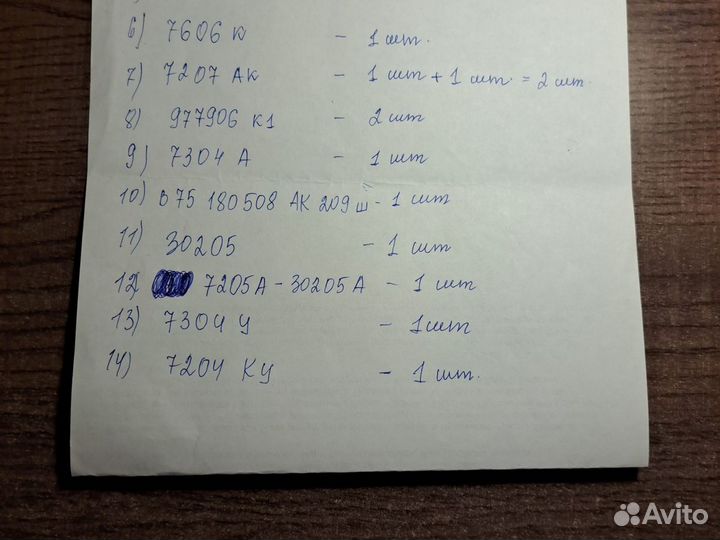 6) 7606 К - 1 шт.
7) 7207 АК - 1 шт + 1 шт. = 2 шт.
8) 977906 К1 - 2 шт
9) 7304 А - 1 шт
10) В 75 180508 АК 209 Ш - 1 шт
11) 30205 - 1 шт
12) 7205А - 30205 А - 1 шт
13) 7304 У - 1шт
14) 7204 КУ - 1 шт.
Avito